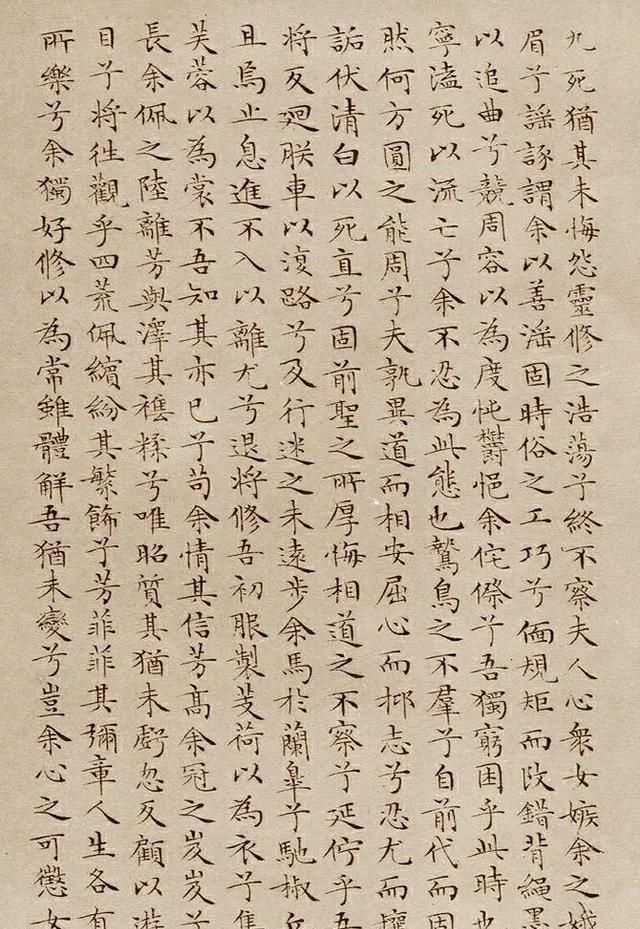 九死猶其未悔怨靈修之浩蕩兮終不察夫人心衆女嫉余之娥
眉兮謡諑謂余以善滛固時俗之工巧兮偭規矩而改錯背繩墨
以追曲兮競周容以為度忳鬱悒余侘傺兮吾獨窮困乎此時也
寧溘死以流亡兮余不忍為此態也鷙鳥之不羣兮自前代而固
然何方圓之能周兮夫孰異道而相安屈心而抑志兮忍尤而攘
詬伏清白以死直兮固前聖之所厚悔相道之不察兮延佇乎吾
將反廻朕車以復路兮及行迷之未遠步余馬於蘭皐兮馳椒丘
且焉止息進不入以離尤兮退將修吾初服製芰荷以為衣兮集
芙蓉以為裳不吾知其亦已兮苟余情其信芳高余冠之岌岌兮
長余佩之陸離芳與澤其襍糅兮唯昭質其猶未虧忽反顧以遊
目兮將往觀乎四荒佩繽紛其繁飾兮芳菲菲其彌章人生各有
所樂兮余獨好修以為常雖體解吾猶未變兮豈余心之可懲女